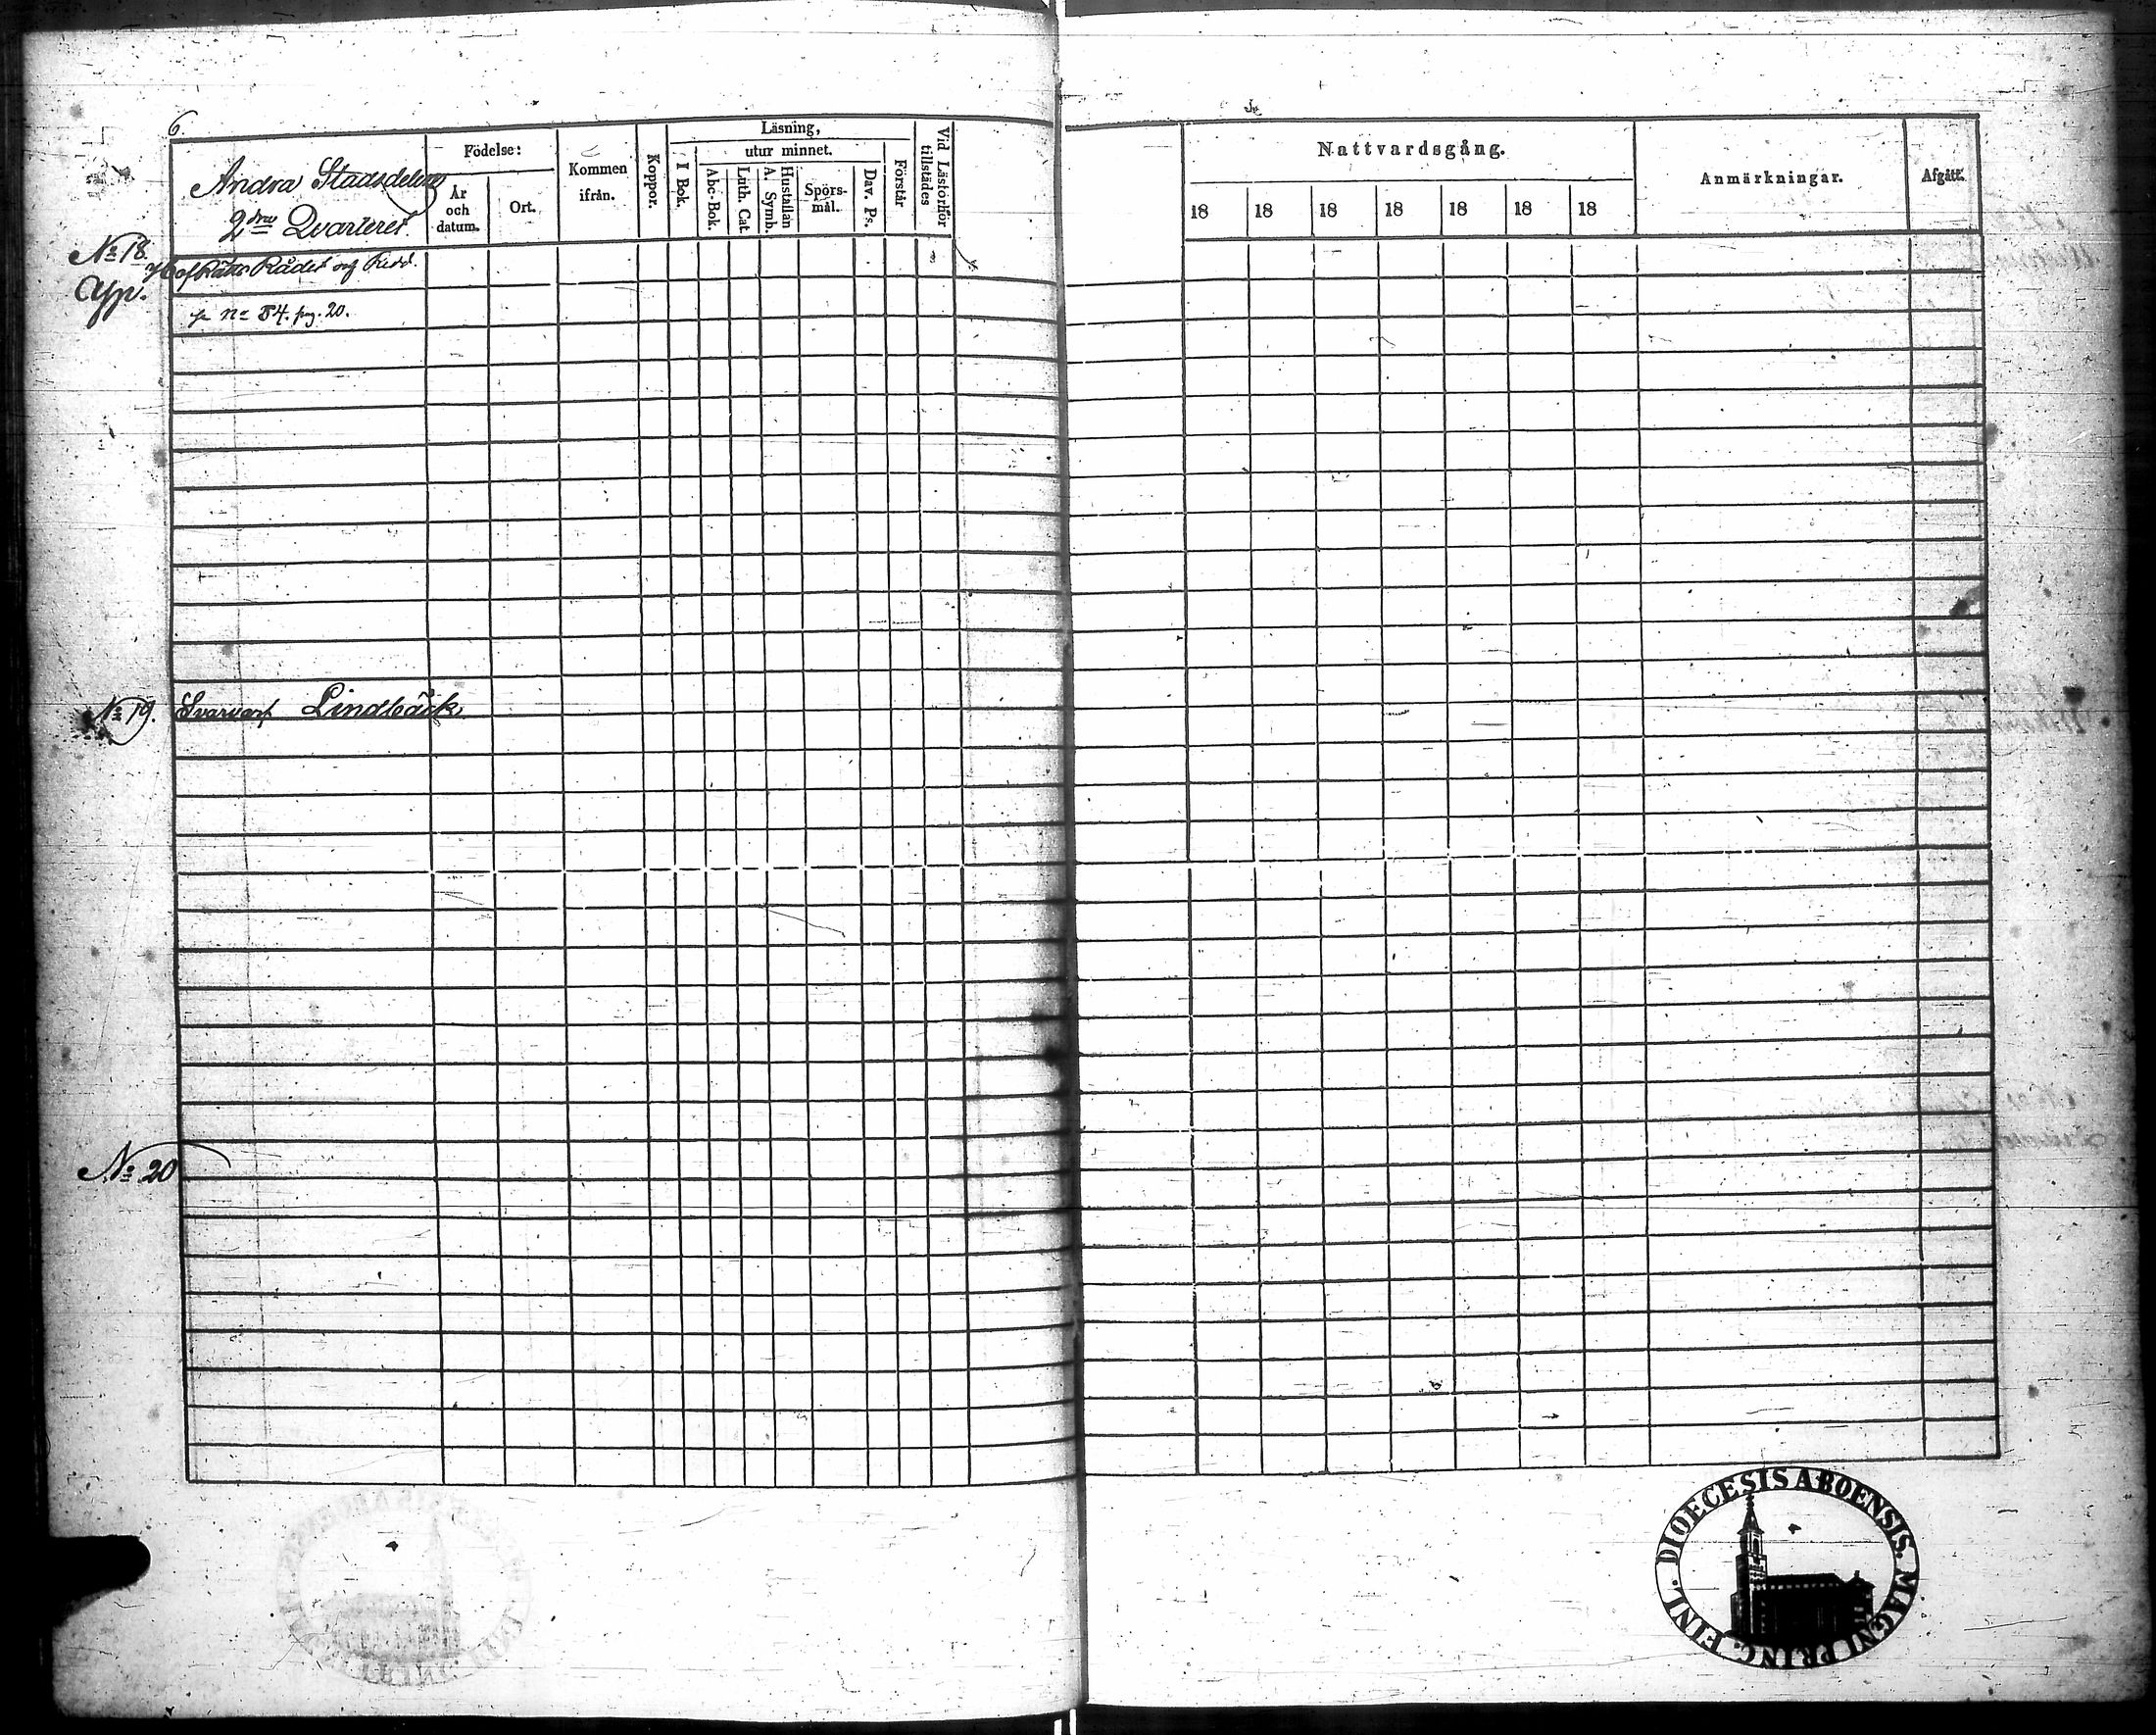 6.
Andra Stadsdelen
2dra Qvarteret
Födelse:
År och datum.
Ort.
Kommen ifrån.
Koppor.
Läsning,
I Bok.
utur minnet.
Abc-Bok.
Luth. Cat.
Hustaflan A. Symb.
Spörs-mål.
Dav. Ps.
Förstår
Vid Läsförhör tillstädes
Nattvardsgång.
18 18 18 18 18 18 18
Anmärkningar.
Afgått.
No 18. Hof Rätts Rådet och Ridd.
no 84. pag. 20.
No 19. Svarvar Lindbäck
No 20
DIOECESIS ABOENSIS. MAGNI PRINC. FINL.